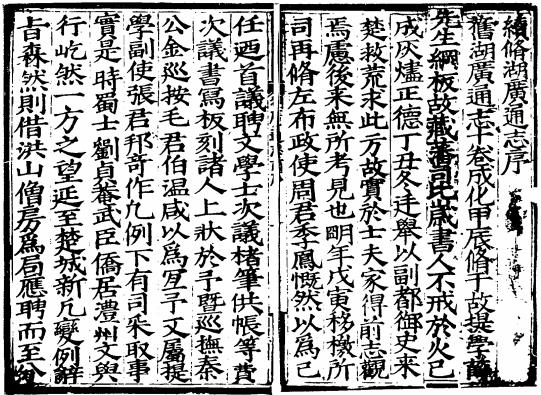 續脩湖廣通志序
舊湖廣通志十卷成化甲辰脩于故提學薛
先生綱板故藏藩司比歲書人不戒於火已
成灰燼正德丁丑冬廷舉以副都御史來
楚救荒求此方故實於士夫家得前志觀
焉慮後來無所考見也明年戊寅移檄所
司再脩左布政使周君季鳳慨然以爲己
任廼首議聘文學士次議楮筆供帳等費
次議書寫板刻諸人上狀於予暨巡撫秦
公金巡按毛君伯溫咸以爲宜予又屬提
學副使張君邦奇作凡例下有司采取事
實是時蜀士劉貞菴武臣僑居澧州文與
行屹然一方之望延至楚城新凡變例辭
旨森然則借洪山僧房爲局應聘而至